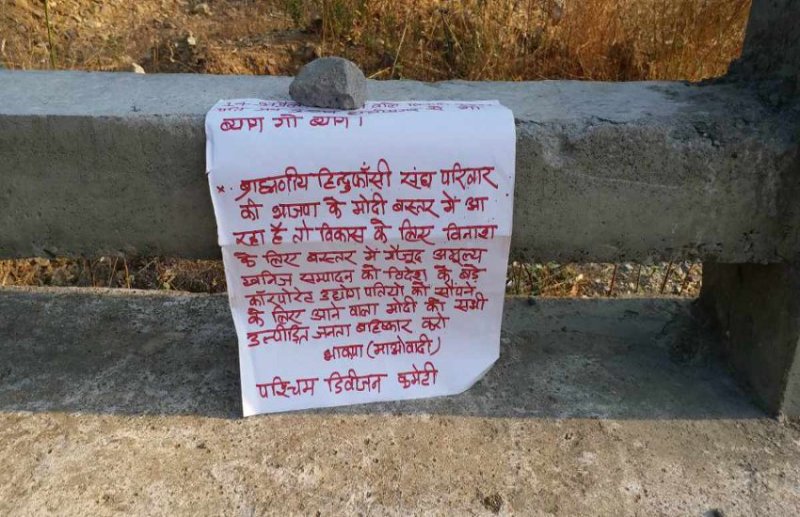 ब्याग गो ब्याग।
x. ब्राह्मणीय हिन्दुफाँसी संघ परिवार
की भाजपा के मोदी बस्तर में आ
रहा है तो विकास के लिए विनाश
के लिए बस्तर में मौजूद अमूल्य
खनिज सम्पादन को विदेश के बड़े
कारपोरेट उद्योग पतियों को सौंपने
के लिए आने वाला मोदी को सभी
उत्पीड़ित जनता बहिष्कार करो
भाकपा (माओवादी)
पश्चिम डिवीजन कमेटी